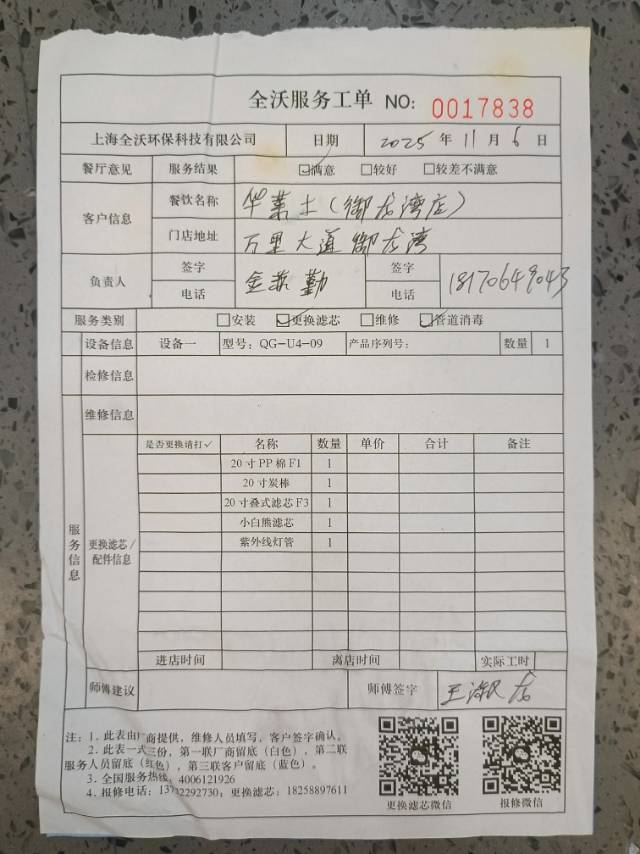 全沃服务工单 NO: 0017838
上海全沃环保科技有限公司 日期 2025 年 11 月 6 日
餐厅意见 服务结果 ☑满意 □较好 □较差不满意
客户信息 餐饮名称 华莱士（御龙湾店）
门店地址 万里大道御龙湾
负责人 签字 签字
电话 电话 18170649043
服务类别 □安装 ☑更换滤芯 □维修 ☑管道消毒
设备信息 设备一 型号: QG-U4-09 产品序列号: 数量 1
检修信息
维修信息
服务信息
更换滤芯/配件信息
是否更换请打✓ 名称 数量 单价 合计 备注
20寸PP棉F1 1
20寸炭棒 1
20寸叠式滤芯F3 1
小白熊滤芯 1
紫外线灯管 1
进店时间 离店时间 实际工时
师傅建议 师傅签字
注: 1. 此表由厂商提供, 维修人员填写, 客户签字确认。
2. 此表一式三份, 第一联厂商留底（白色）, 第二联
服务人员留底（红色）, 第三联客户留底（蓝色）。
3. 全国服务热线: 4006121926
4. 报修电话: 更换滤芯: 18258897611
更换滤芯微信 报修微信